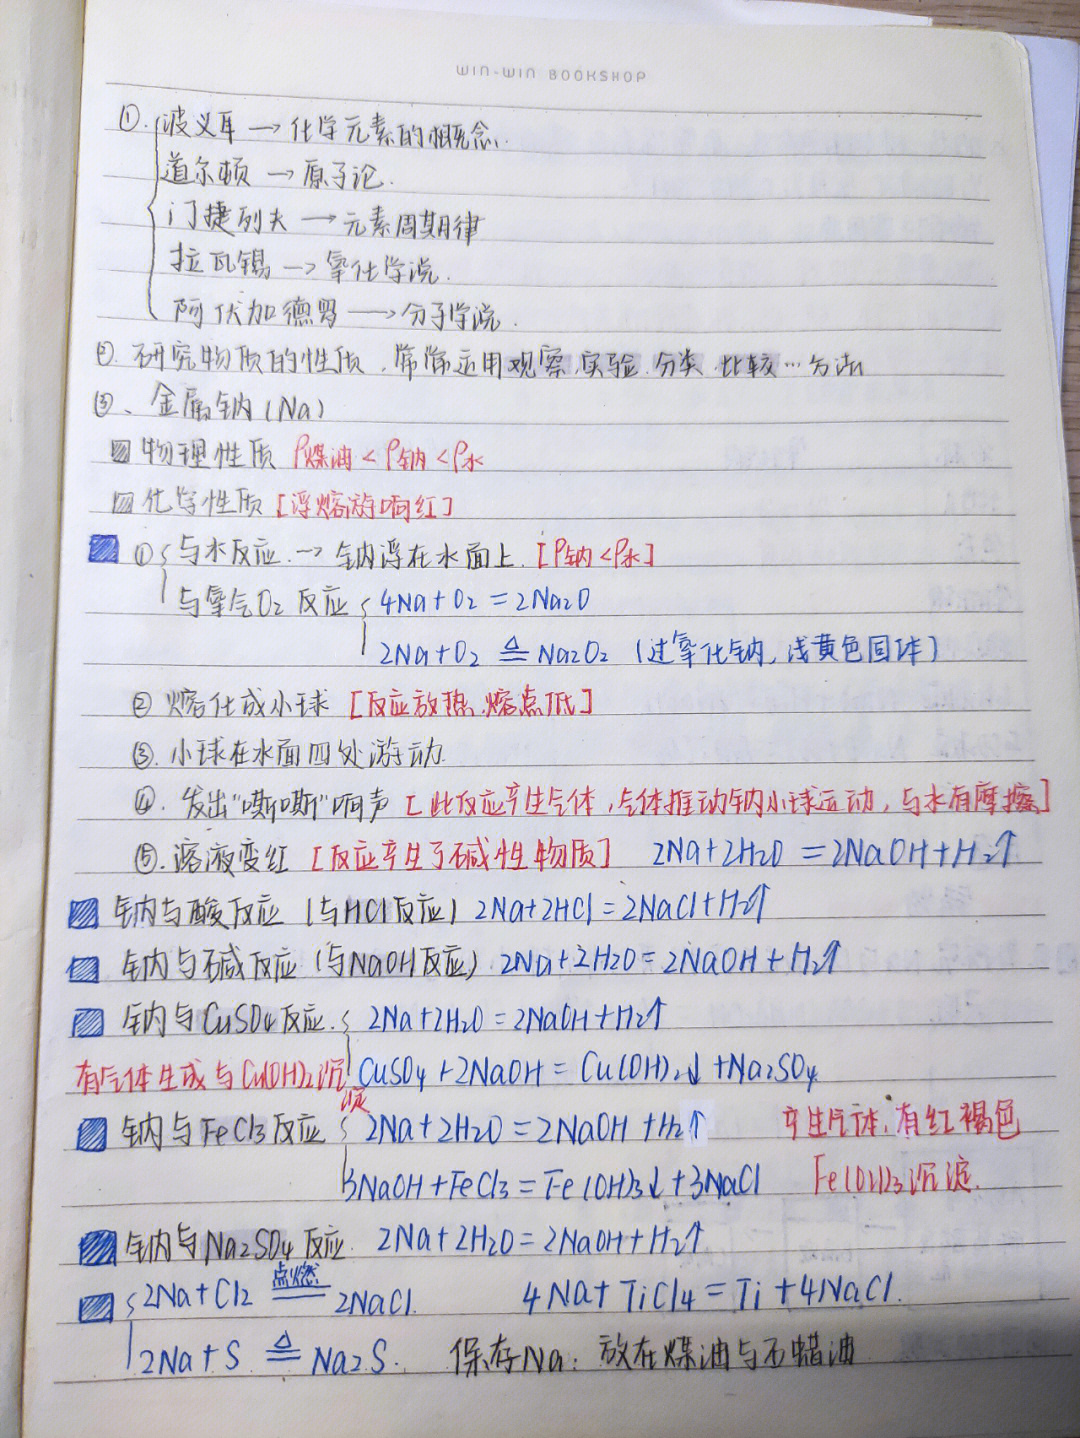 WIN-WIN BOOKSHOP
①.波义耳→化学元素的概念.
道尔顿→原子论.
门捷列夫→元素周期律
拉瓦锡→氧化学说.
阿伏加德罗→分子学说.
②.研究物质的性质,常常运用观察.实验.分类.比较…方法
③、金属钠(Na)
物理性质 ρ煤油<ρ钠<ρ水
化学性质[浮熔游响红]
①与水反应.→钠浮在水面上.[ρ钠<ρ水]
与氧气O2反应 4Na+O2=2Na2O
2Na+O2 ≜ Na2O2 (过氧化钠,浅黄色固体)
②熔化成小球[反应放热.熔点低]
③.小球在水面四处游动.
④.发出“嘶嘶”响声[此反应产生气体,气体推动钠小球运动,与水有摩擦]
⑤.溶液变红[反应产生了碱性物质] 2Na+2H2O=2NaOH+H2↑
钠与酸反应(与HCl反应)2Na+2HCl=2NaCl+H2↑
钠与碱反应(与NaOH反应).2Na+2H2O=2NaOH+H2↑
钠与CuSO4反应. 2Na+2H2O=2NaOH+H2↑
有气体生成与Cu(OH)2沉淀 CuSO4+2NaOH=Cu(OH)2↓+Na2SO4
钠与FeCl3反应 2Na+2H2O=2NaOH+H2↑ 产生气体,有红褐色
3NaOH+FeCl3=Fe(OH)3↓+3NaCl Fe(OH)3沉淀.
钠与Na2SO4反应. 2Na+2H2O=2NaOH+H2↑
2Na+Cl2 点燃 2NaCl. 4Na+TiCl4=Ti+4NaCl.
2Na+S ≜ Na2S. 保存Na:放在煤油与石蜡油